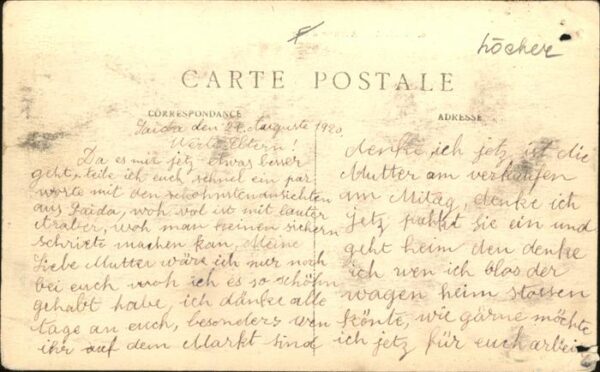 Löcher
CARTE POSTALE
CORRESPONDANCE
ADRESSE
Saida den 24 Auguste 1920
Werte Eltern!
Da es mir jetz etwas besser
geht, teile ich euch schnel ein par
worte mit den schöhnstenansichten
aus Saida, woh vol ist mit lauter
Araber, woh man keinen sichern
schrixte machen kan, Meine
Liebe Mutter wäre ich nur noch
bei euch woh ich es so schöhn
gehabt habe, ich dänke alle
tage an euch, besonders wen
ihr auf dem Markt sind
denke ich jetz ist die
Mutter am verkaufen
am Mitag, denke ich
jetz pakt sie ein und
geht heim den denke
ich wen ich blos der
wagen heim stossen
könte, wie gärne möchte
ich jetz für euch arbei